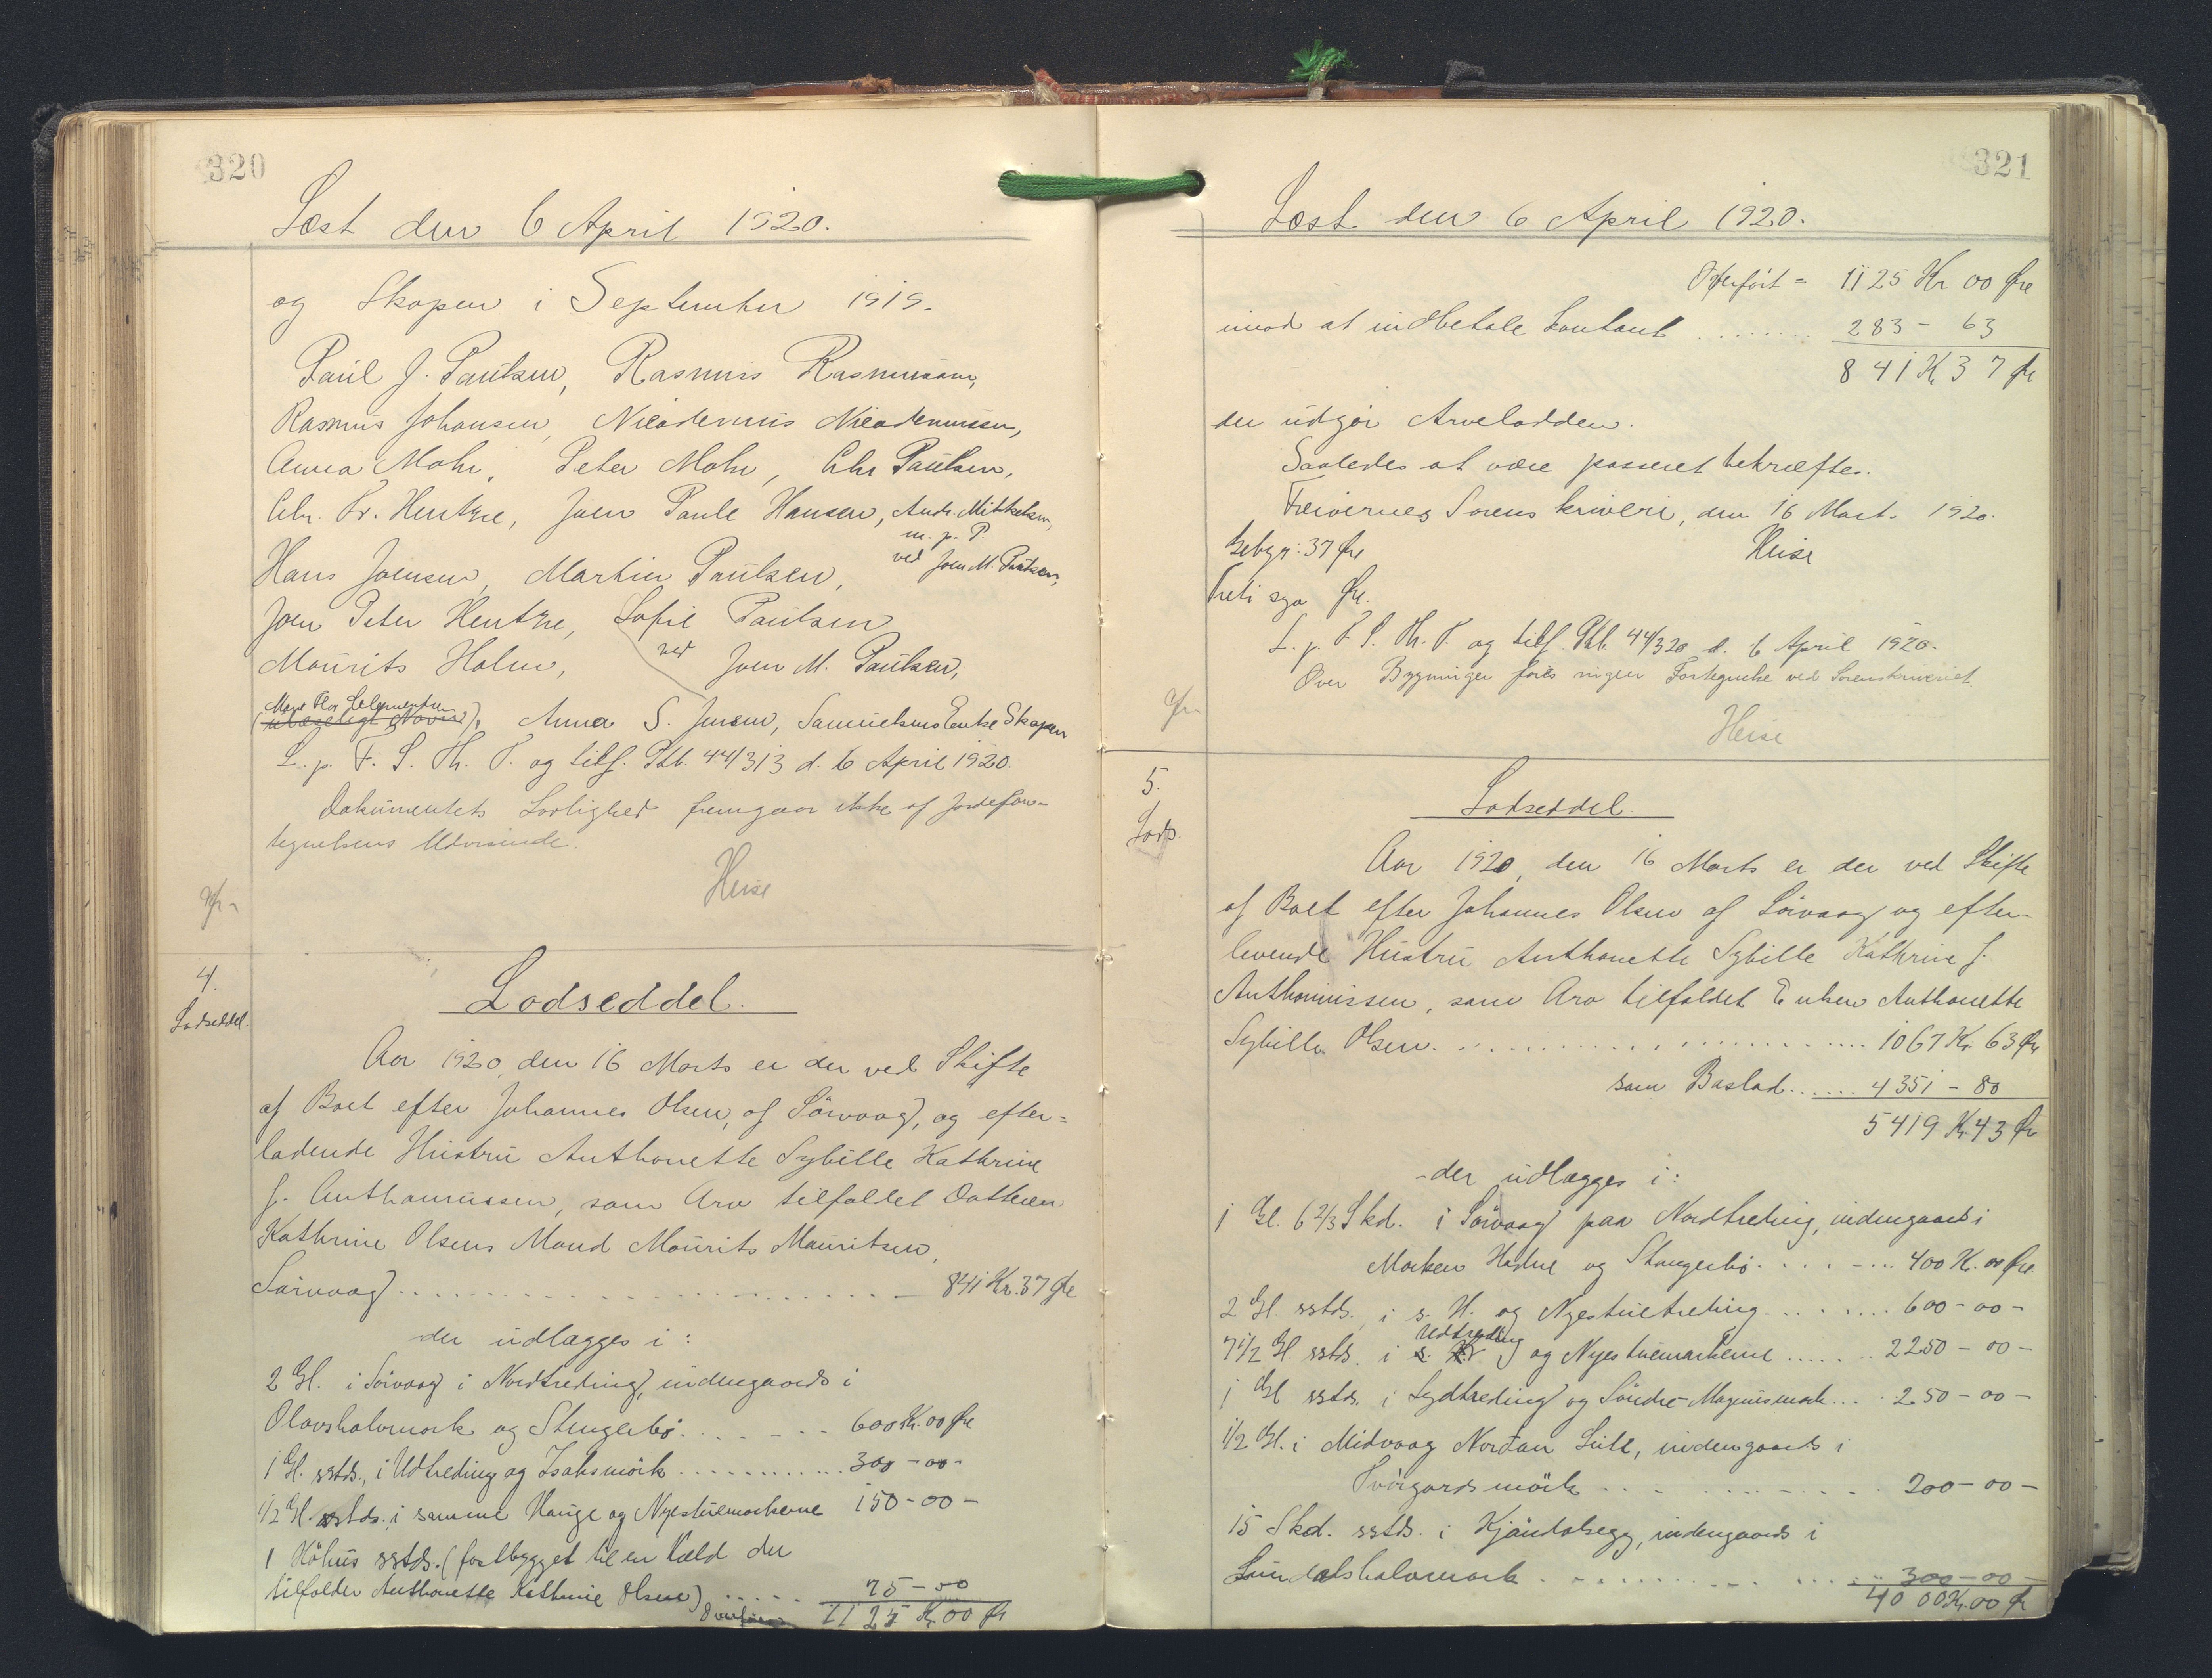 320
Læst den 6 April 1920.
og Skopen i September 1919.
Paul J. Paulsen, Rasmus Rasmussen,
Rasmus Johansen, Nicodemus Nicodemussen,
Anna Mohr, Peter Mohr, Chr Paulsen,
Chr. Fr. Hentze, Joen Paule Hansen, Andr. Mikkelsen,
m. p. P.
ved Joen M. Paulsen,
Hans Joensen, Martin Paulsen,
Joen Peter Hentze, Sofie Paulsen
Mourits Holm, ved Joen M. Paulsen,
Anna S. Jensen, Samuelsens Enke Skopen
L. p. F. S. Th. P. og tilf. Ptb. 44/313 d. 6 April 1920.
Dokumentets Lovlighed fremgaar ikke af Jordefor-
tegnelsens Udvisende.
Heise
4.
Lodseddel.
Lodseddel.
Aar 1920, den 16 Marts er der ved Skifte
af Boet efter Johannes Olsen, af Sörvaag, og efter=
ladende Hustru Anthonette Sybille Kathrine
J. Anthoniussen, som Arv tilfaldet Datteren
Kathrine Olsens Mand Mourits Mauritsen,
Sörvaag 841 Kr. 37 Øre
der udlægges i:
2 Gl. i Sörvaag i Nordtreding, indengaards i
Olavshalvmork og Stengerbö. 600 Kr. 00 Øre
1 Gl. sstds., i Udtreding og Isaksmörk 300-00-
1/2 Gl. sstds. i samme Hauge og Nyestuemorkerne 150-00-
1 Höhus sstds. (fastbygget til en Kæld der
tilfalder Anthonette Kathrine Olsen) 75-00
1125 Kr 00 Ør
321
Læst den 6 April 1920.
Overført = 1125 Kr 00 Øre
imod at indbetale Kontant 283- 63
841 Kr 37 Ør
der udgör Arvelodden.
Saaledes at være passeret bekræftes.
Færøernes Sorenskriveri, den 16 Mart. 1920.
Gebyr: 37 Øre Heise
Treti syv Øre.
L. p. F. S. Th. P. og tilf. Ptb. 44/320 d. 6 April 1920.
Over Bygninger föres ingen Fortegnelse ved Sorenskriveriet.
Heise
5.
Lods.
Lodseddel.
Aar 1920, den 16 Marts er der ved Skifte
af Boet efter Johannes Olsen af Sörvaag og efter-
levende Hustru Anthonette Sybille Kathrine J.
Anthoniussen, som Arv tilfaldet Enken Anthonette
Sybille Olsen. 1067 Kr. 63 Øre
som Boslod 4351-80
5419 Kr. 43 Ør
-der udlægges i:
1 Gl. 6 2/3 Skd. i Sörvaag paa Nordtreding, indengaards i
Morken Hedne og Stangerbö 400 Kr. 00 Øre.
2 Gl sstds., i s. H. og Nyestuetreding 600-00-
Udtreding
7 1/2 Gl. sstds. i og Nyestuemorkerne 2250-00-
1 Gl sstds. i Sydtreding og Söndre Magnusmork 250-00-
1/2 Gl. i Midvaag Nordan Lidt, indengaards i
Tvörgardsmörk 200-00-
15 Skd. sstds. i Kjöndalsegg, indengaards i
Lundalshalvmork 300-00-
4000 Kr. 00 Ør